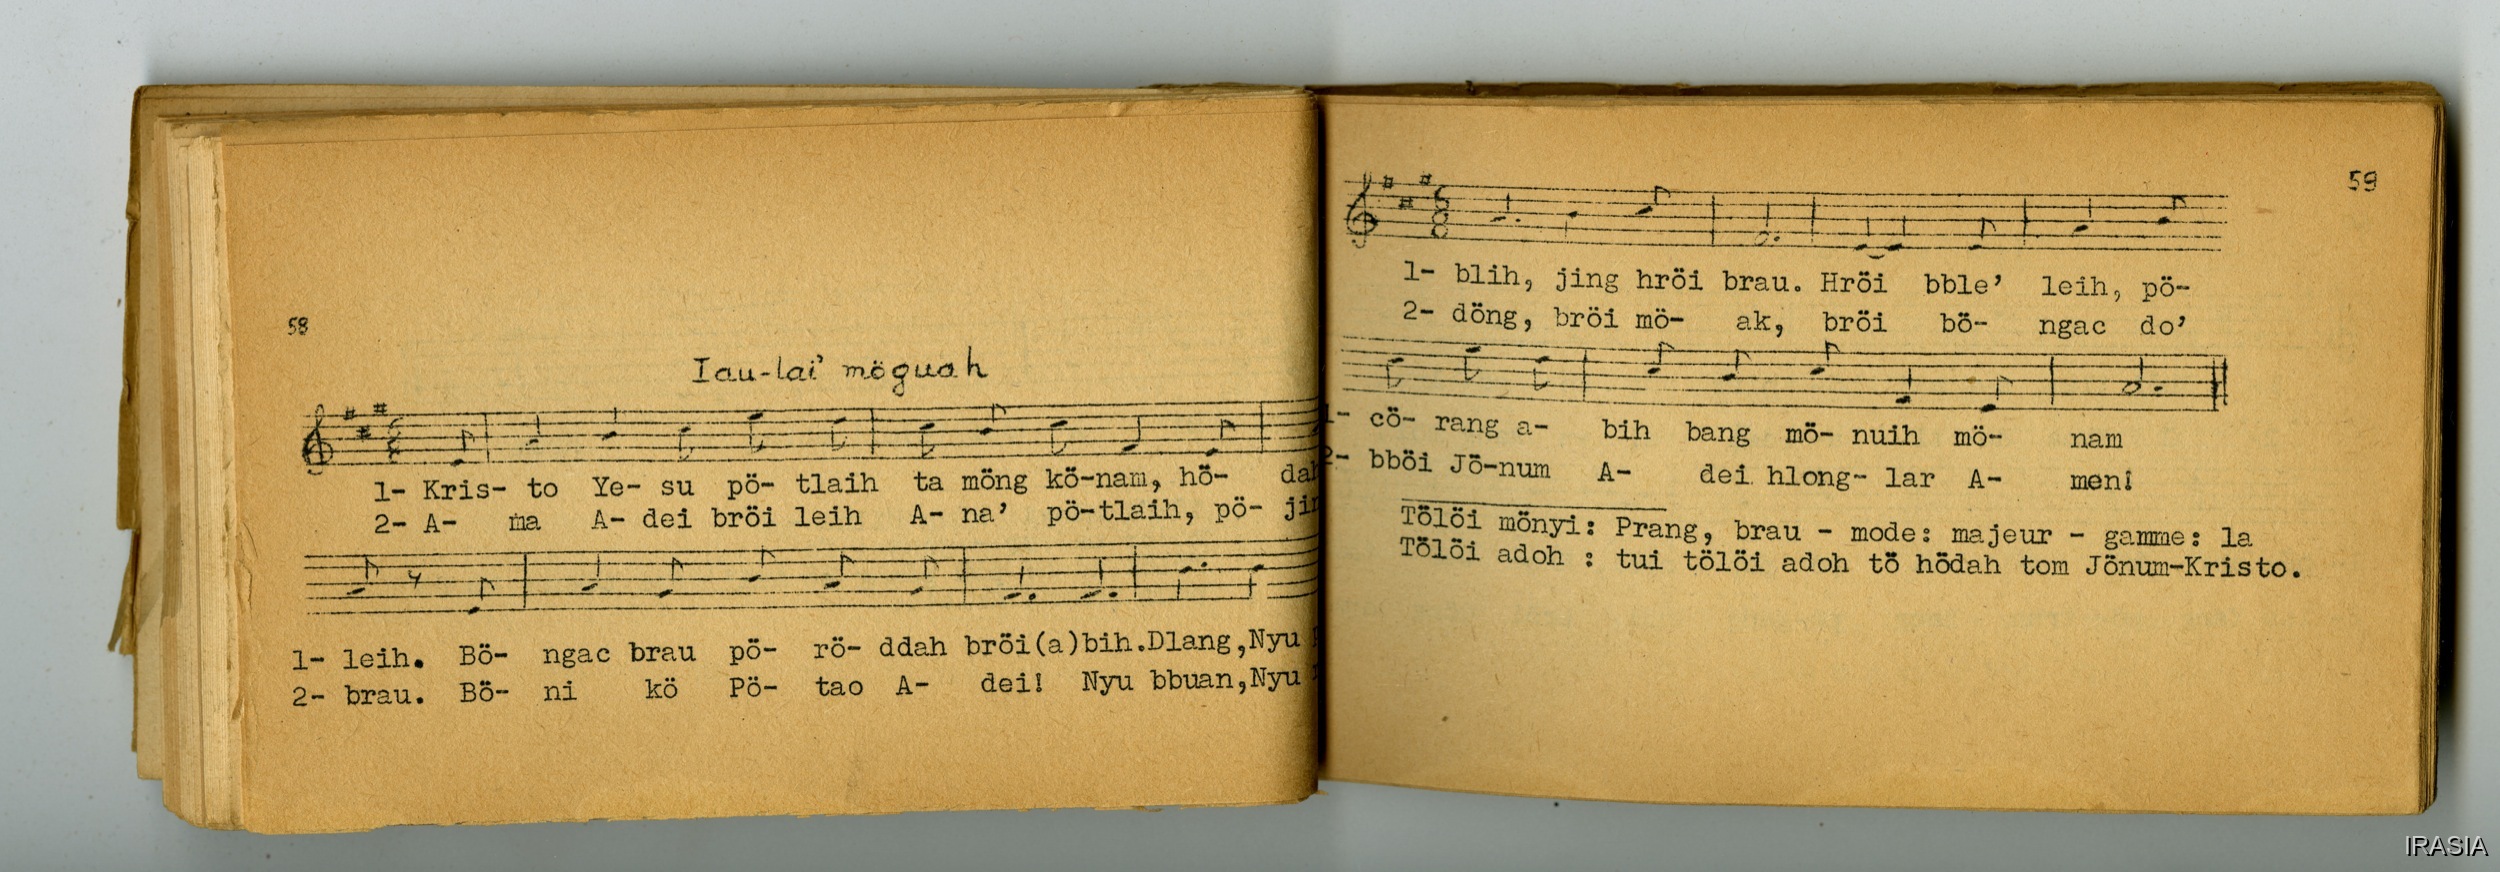 58
Iau-lai' möguah
1- Kris- to Ye- su pö- tlaih ta möng kö-nam, hö- dah
2- A- ma A- dei bröi leih A- na' pö-tlaih, pö- jin
1- leih. Bö- ngac brau pö- rö- ddah bröi(a)bih.Dlang,Nyu
2- brau. Bö- ni kö Pö- tao A- dei! Nyu bbuan,Nyu
59
1- blih, jing hröi brau. Hröi bble' leih, pö-
2- döng, bröi mö- ak, bröi bö- ngac do'
1- cö- rang a- bih bang mö- nuih mö- nam
2- bböi Jö-num A- dei hlong- lar A- men!
Tölöi mönyi: Prang, brau - mode: majeur - gamme: la
Tölöi adoh : tui tölöi adoh tö hödah tom Jönum-Kristo.
IRASIA